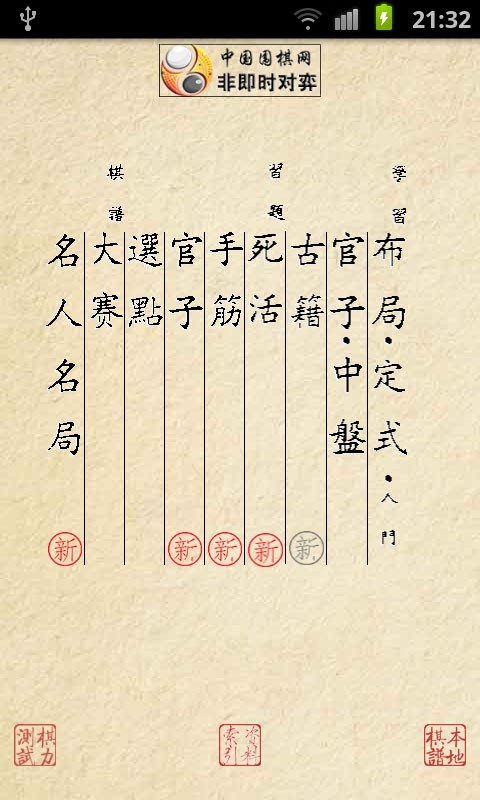 21:32
中国围棋网
非即时对弈
學習
布局·定式·入門
官子·中盤
習題
古籍
新
死活
新
手筋
新
官子
新
選點
棋譜
大赛
名人名局
新
本地棋譜
资料索引
棋力測試